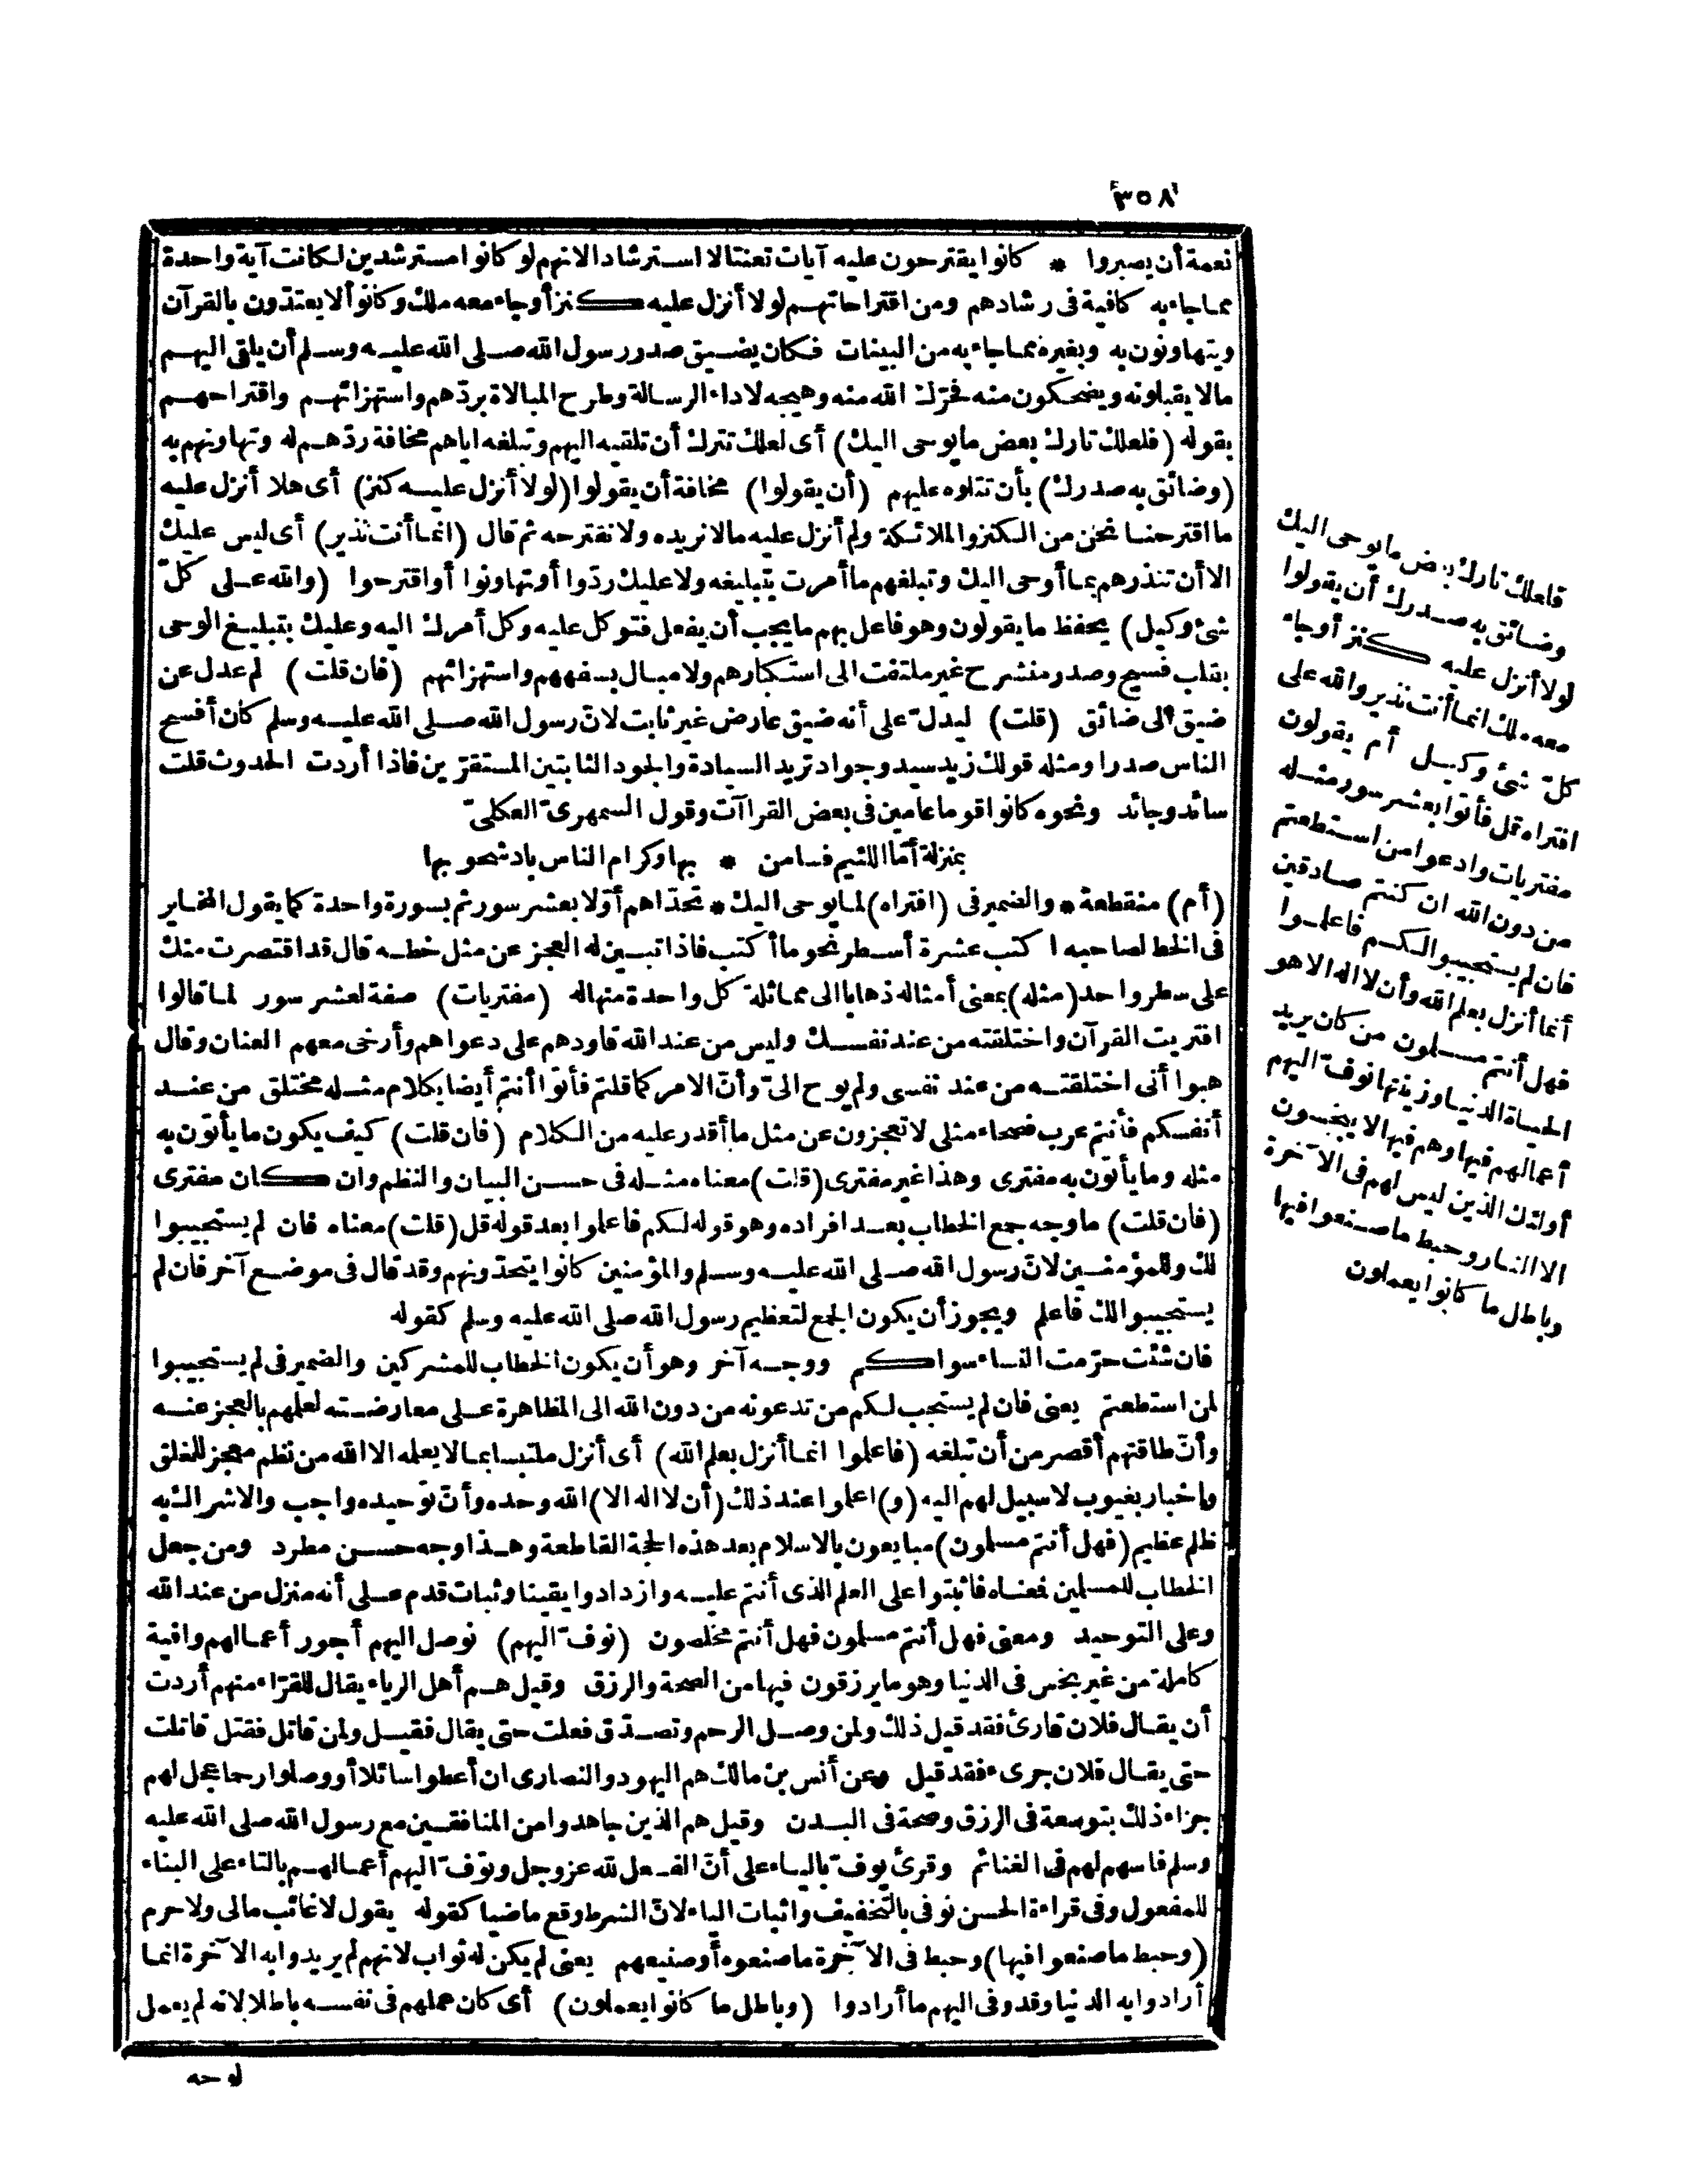 ٣٥٨
نعمة أن يصبروا * كانوا يقترحون عليه آيات تعنتا لا استرشادا لانهم لو كانوا مسترشدين لكانت آية واحدة
مما جاء به كافية فى رشادهم ومن اقتراحاتهم لولا أنزل عليه كنز أو جاء معه ملك وكانوا لا يعتدّون بالقرآن
ويتهاونون به وبغيره مما جاء به من البينات فكان يضيق صدر رسول الله صلى الله عليه وسلم أن يلقى اليهم
مالا يقبلونه ويضحكون منه فحرّك الله منه وهيجه لاداء الرسالة وطرح المبالاة بردّهم واستهزائهم واقتراحهم
بقوله (فلعلك تارك بعض ما يوحى اليك) أى لعلك تترك أن تلقيه اليهم وتبلغه اياهم مخافة ردّهم له وتهاونهم به
(وضائق به صدرك) بأن تتلوه عليهم (أن يقولوا) مخافة أن يقولوا (لولا أنزل عليه كنز) أى هلا أنزل عليه
ما اقترحنا نحن من الكنز والملائكة ولم أنزل عليه مالا نريده ولا نقترحه ثم قال (انما أنت نذير) أى ليس عليك
الا أن تنذرهم بما أوحى اليك وتبلغهم ما أمرت بتبليغه ولا عليك ردّوا أو تهاونوا أو اقترحوا (والله على كلّ
شئ وكيل) يحفظ ما يقولون وهو فاعل بهم ما يجب أن يفعل فتوكل عليه وكل أمرك اليه وعليك بتبليغ الوحى
بقلب فسيح وصدر منشرح غير ملتفت الى استكبارهم ولا مبال بسفههم واستهزائهم (فان قلت) لم عدل عن
ضيق الى ضائق (قلت) ليدلّ على أنه ضيق عارض غير ثابت لانّ رسول الله صلى الله عليه وسلم كان أفسح
الناس صدرا ومثله قولك زيد سيد وجواد تريد السيادة والجود الثابتين المستقرّين فاذا أردت الحدوث قلت
سائد وجائد ونحوه كانوا قوما عامين فى بعض القراآت وقول السمهرىّ العكلىّ
بمنزلة أمّا اللئيم فسامن * بها وكرام الناس باد شحوبها
(أم) منقطعة * والضمير فى (افتراه) لما يوحى اليك * تحدّاهم أوّلا بعشر سور ثم بسورة واحدة كما يقول المخاير
فى الخط لصاحبه اكتب عشرة أسطر نحو ما أكتب فاذا تبين له العجز عن مثل خطه قال قد اقتصرت منك
على سطر واحد (مثله) بمعنى أمثاله ذهابا الى مماثلة كل واحدة منها له (مفتريات) صفة لعشر سور لما قالوا
افتريت القرآن واختلقته من عند نفسك وليس من عند الله قاودهم على دعواهم وأرخى معهم العنان وقال
هبوا أنى اختلقته من عند نفسى ولم يوح الىّ وأنّ الامر كما قلتم فأتوا أنتم أيضا بكلام مثله مختلق من عند
أنفسكم فأنتم عرب فصحاء مثلى لا تعجزون عن مثل ما أقدر عليه من الكلام (فان قلت) كيف يكون ما يأتون به
مثله وما يأتون به مفترى وهذا غير مفترى (قلت) معناه مثله فى حسن البيان والنظم وان كان مفترى
(فان قلت) ما وجه جمع الخطاب بعد افراده وهو قوله لكم فاعلموا بعد قوله قل (قلت) معناه فان لم يستجيبوا
لك وللمؤمنين لانّ رسول الله صلى الله عليه وسلم والمؤمنين كانوا يتحدّونهم وقد قال فى موضع آخر فان لم
يستجيبوا لك فاعلم ويجوز أن يكون الجمع لتعظيم رسول الله صلى الله عليه وسلم كقوله
فان شئت حرّمت النساء سواكم ووجه آخر وهو أن يكون الخطاب للمشركين والضمير فى لم يستجيبوا
لمن استطعتم يعنى فان لم يستجب لكم من تدعونه من دون الله الى المظاهرة على معارضته لعلمهم بالعجز عنه
وأنّ طاقتهم أقصر من أن تبلغه (فاعلموا انما أنزل بعلم الله) أى أنزل ملتبسا بما لا يعلمه الا الله من نظم معجز للخلق
واخبار بغيوب لا سبيل لهم اليه (و) اعلموا عند ذلك (أن لا اله الا) الله وحده وأنّ توحيده واجب والاشراك به
ظلم عظيم (فهل أنتم مسلمون) مبايعون بالاسلام بعد هذه الحجة القاطعة وهذا وجه حسن مطرد ومن جعل
الخطاب للمسلمين فمعناه فاثبتوا على العلم الذى أنتم عليه وازدادوا يقينا وثبات قدم على أنه منزل من عند الله
وعلى التوحيد ومعنى فهل أنتم مسلمون فهل أنتم مخلصون (نوفّ اليهم) نوصل اليهم أجور أعمالهم وافية
كاملة من غير بخس فى الدنيا وهو ما يرزقون فيها من الصحة والرزق وقيل هم أهل الرياء يقال للقرّاء منهم أردت
أن يقال فلان قارئ فقد قيل ذلك ولمن وصل الرحم وتصدّق فعلت حتى يقال فقيل ولمن قاتل فقتل قاتلت
حتى يقال فلان جرىء فقد قيل وعن أنس بن مالك هم اليهود والنصارى ان أعطوا سائلا أو وصلوا رحما عجل لهم
جزاء ذلك بتوسعة فى الرزق وصحة فى البدن وقيل هم الذين جاهدوا من المنافقين مع رسول الله صلى الله عليه
وسلم فاسهم لهم فى الغنائم وقرئ يوفّ بالياء على أنّ الفعل لله عز وجل وتوفّ اليهم أعمالهم بالتاء على البناء
للمفعول وفى قراءة الحسن نوفى بالتخفيف واثبات الياء لانّ الشرط وقع ماضيا كقوله يقول لا غائب مالى ولا حرم
(وحبط ما صنعوا فيها) وحبط فى الآخرة ما صنعوه أو صنيعهم يعنى لم يكن له ثواب لانهم لم يريدوا به الآخرة انما
أرادوا به الدنيا وقد وفى اليهم ما أرادوا (وباطل ما كانوا يعملون) أى كان عملهم فى نفسه باطلا لانه لم يعمل
لوجه
فلعلك تارك بعض ما يوحى اليك
وضائق به صدرك أن يقولوا
لولا أنزل عليه كنز أو جاء
معه ملك انما أنت نذير والله على
كلّ شئ وكيل أم يقولون
افتراه قل فأتوا بعشر سور مثله
مفتريات وادعوا من استطعتم
من دون الله ان كنتم صادقين
فان لم يستجيبوا لكم فاعلموا
أنما أنزل بعلم الله وأن لا اله الا هو
فهل أنتم مسلمون من كان يريد
الحياة الدنيا وزينتها نوفّ اليهم
أعمالهم فيها وهم فيها لا يبخسون
أولئك الذين ليس لهم فى الآخرة
الا النار وحبط ما صنعوا فيها
وباطل ما كانوا يعملون